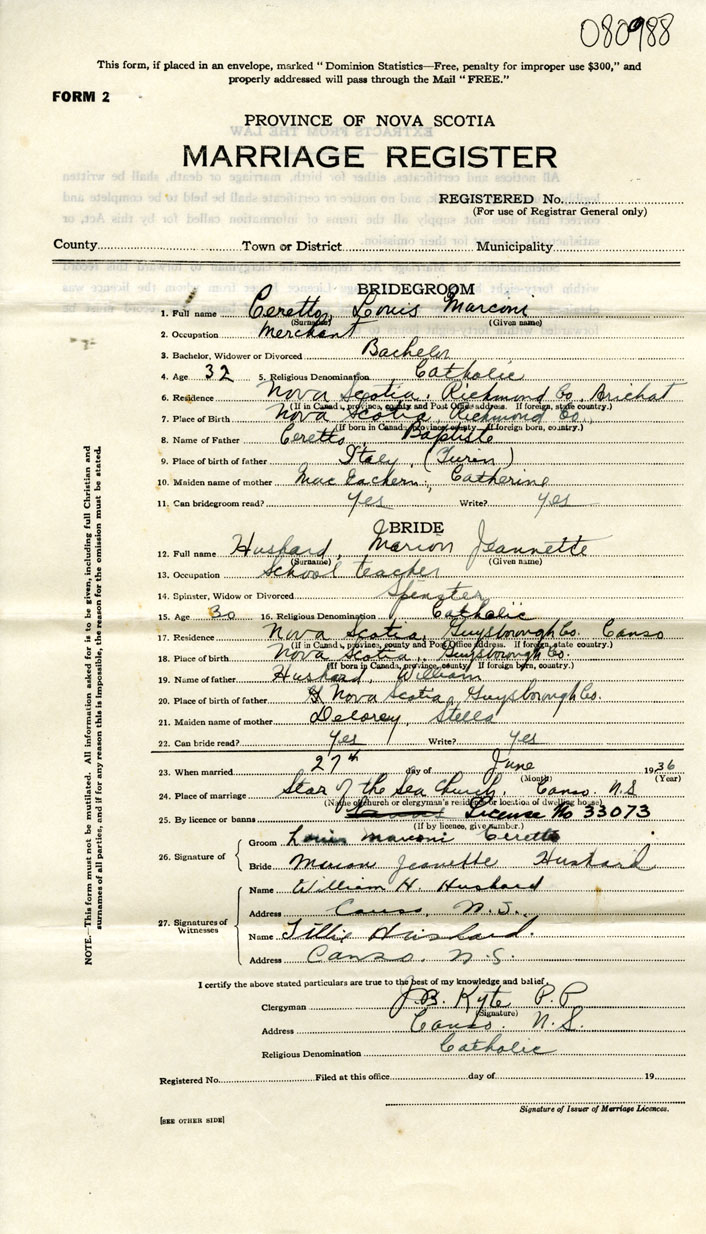 080988
This form, if placed in an envelope, marked "Dominion Statistics—Free, penalty for improper use $300," and
properly addressed will pass through the Mail "FREE."
FORM 2
PROVINCE OF NOVA SCOTIA
MARRIAGE REGISTER
REGISTERED No.
(For use of Registrar General only)
County Town or District Municipality
BRIDEGROOM
1. Full name Ceretto, Louis Marconi
(Surname) (Given name)
2. Occupation Merchant
3. Bachelor, Widower or Divorced Bachelor
4. Age 32 5. Religious Denomination Catholic
6. Residence Nova Scotia, Richmond Co. Arichat
(If in Canada, province, county and Post Office address. If foreign, state country.)
7. Place of Birth Nova Scotia, Richmond Co.
(If born in Canada, province, county. If foreign born, country.)
8. Name of Father Ceretto, Baptiste
9. Place of birth of father Italy, (Turin)
10. Maiden name of mother MacEachern, Catherine
11. Can bridegroom read? yes Write? yes
BRIDE
12. Full name Husband, Marion Jeannette
(Surname) (Given name)
13. Occupation School teacher
14. Spinster, Widow or Divorced Spinster
15. Age 30 16. Religious Denomination Catholic
17. Residence Nova Scotia, Guysborough Co. Canso
(If in Canada, province, county and Post Office address. If foreign, state country.)
18. Place of birth Nova Scotia, Guysborough Co.
(If born in Canada, province, county. If foreign born, country.)
19. Name of father Husband, William
20. Place of birth of father Nova Scotia, Guysborough Co.
21. Maiden name of mother Delorey, Stella
22. Can bride read? yes Write? yes
23. When married 27th day of June 1936
(Month) (Year)
24. Place of marriage Star of the Sea Church, Canso, N.S
(Name of church or clergyman's residence or location of dwelling house)
25. By licence or banns License No 33073
(If by licence, give number.)
26. Signature of Groom Louis Marconi Ceretto
Bride Marion Jeanette Husband
27. Signatures of Witnesses
Name William H. Husband
Address Canso, N.S.
Name Tillie Husband.
Address Canso, N.S.
I certify the above stated particulars are true to the best of my knowledge and belief.
Clergyman J.B. Kyte P.P
(Signature)
Address Canso. N.S.
Religious Denomination Catholic
Registered No. Filed at this office day of 19
Signature of Issuer of Marriage Licences.
[SEE OTHER SIDE]
NOTE.—This form must not be mutilated. All information asked for is to be given, including full Christian and
surnames of all parties, and if for any reason this is impossible, the reason for the omission must be stated.